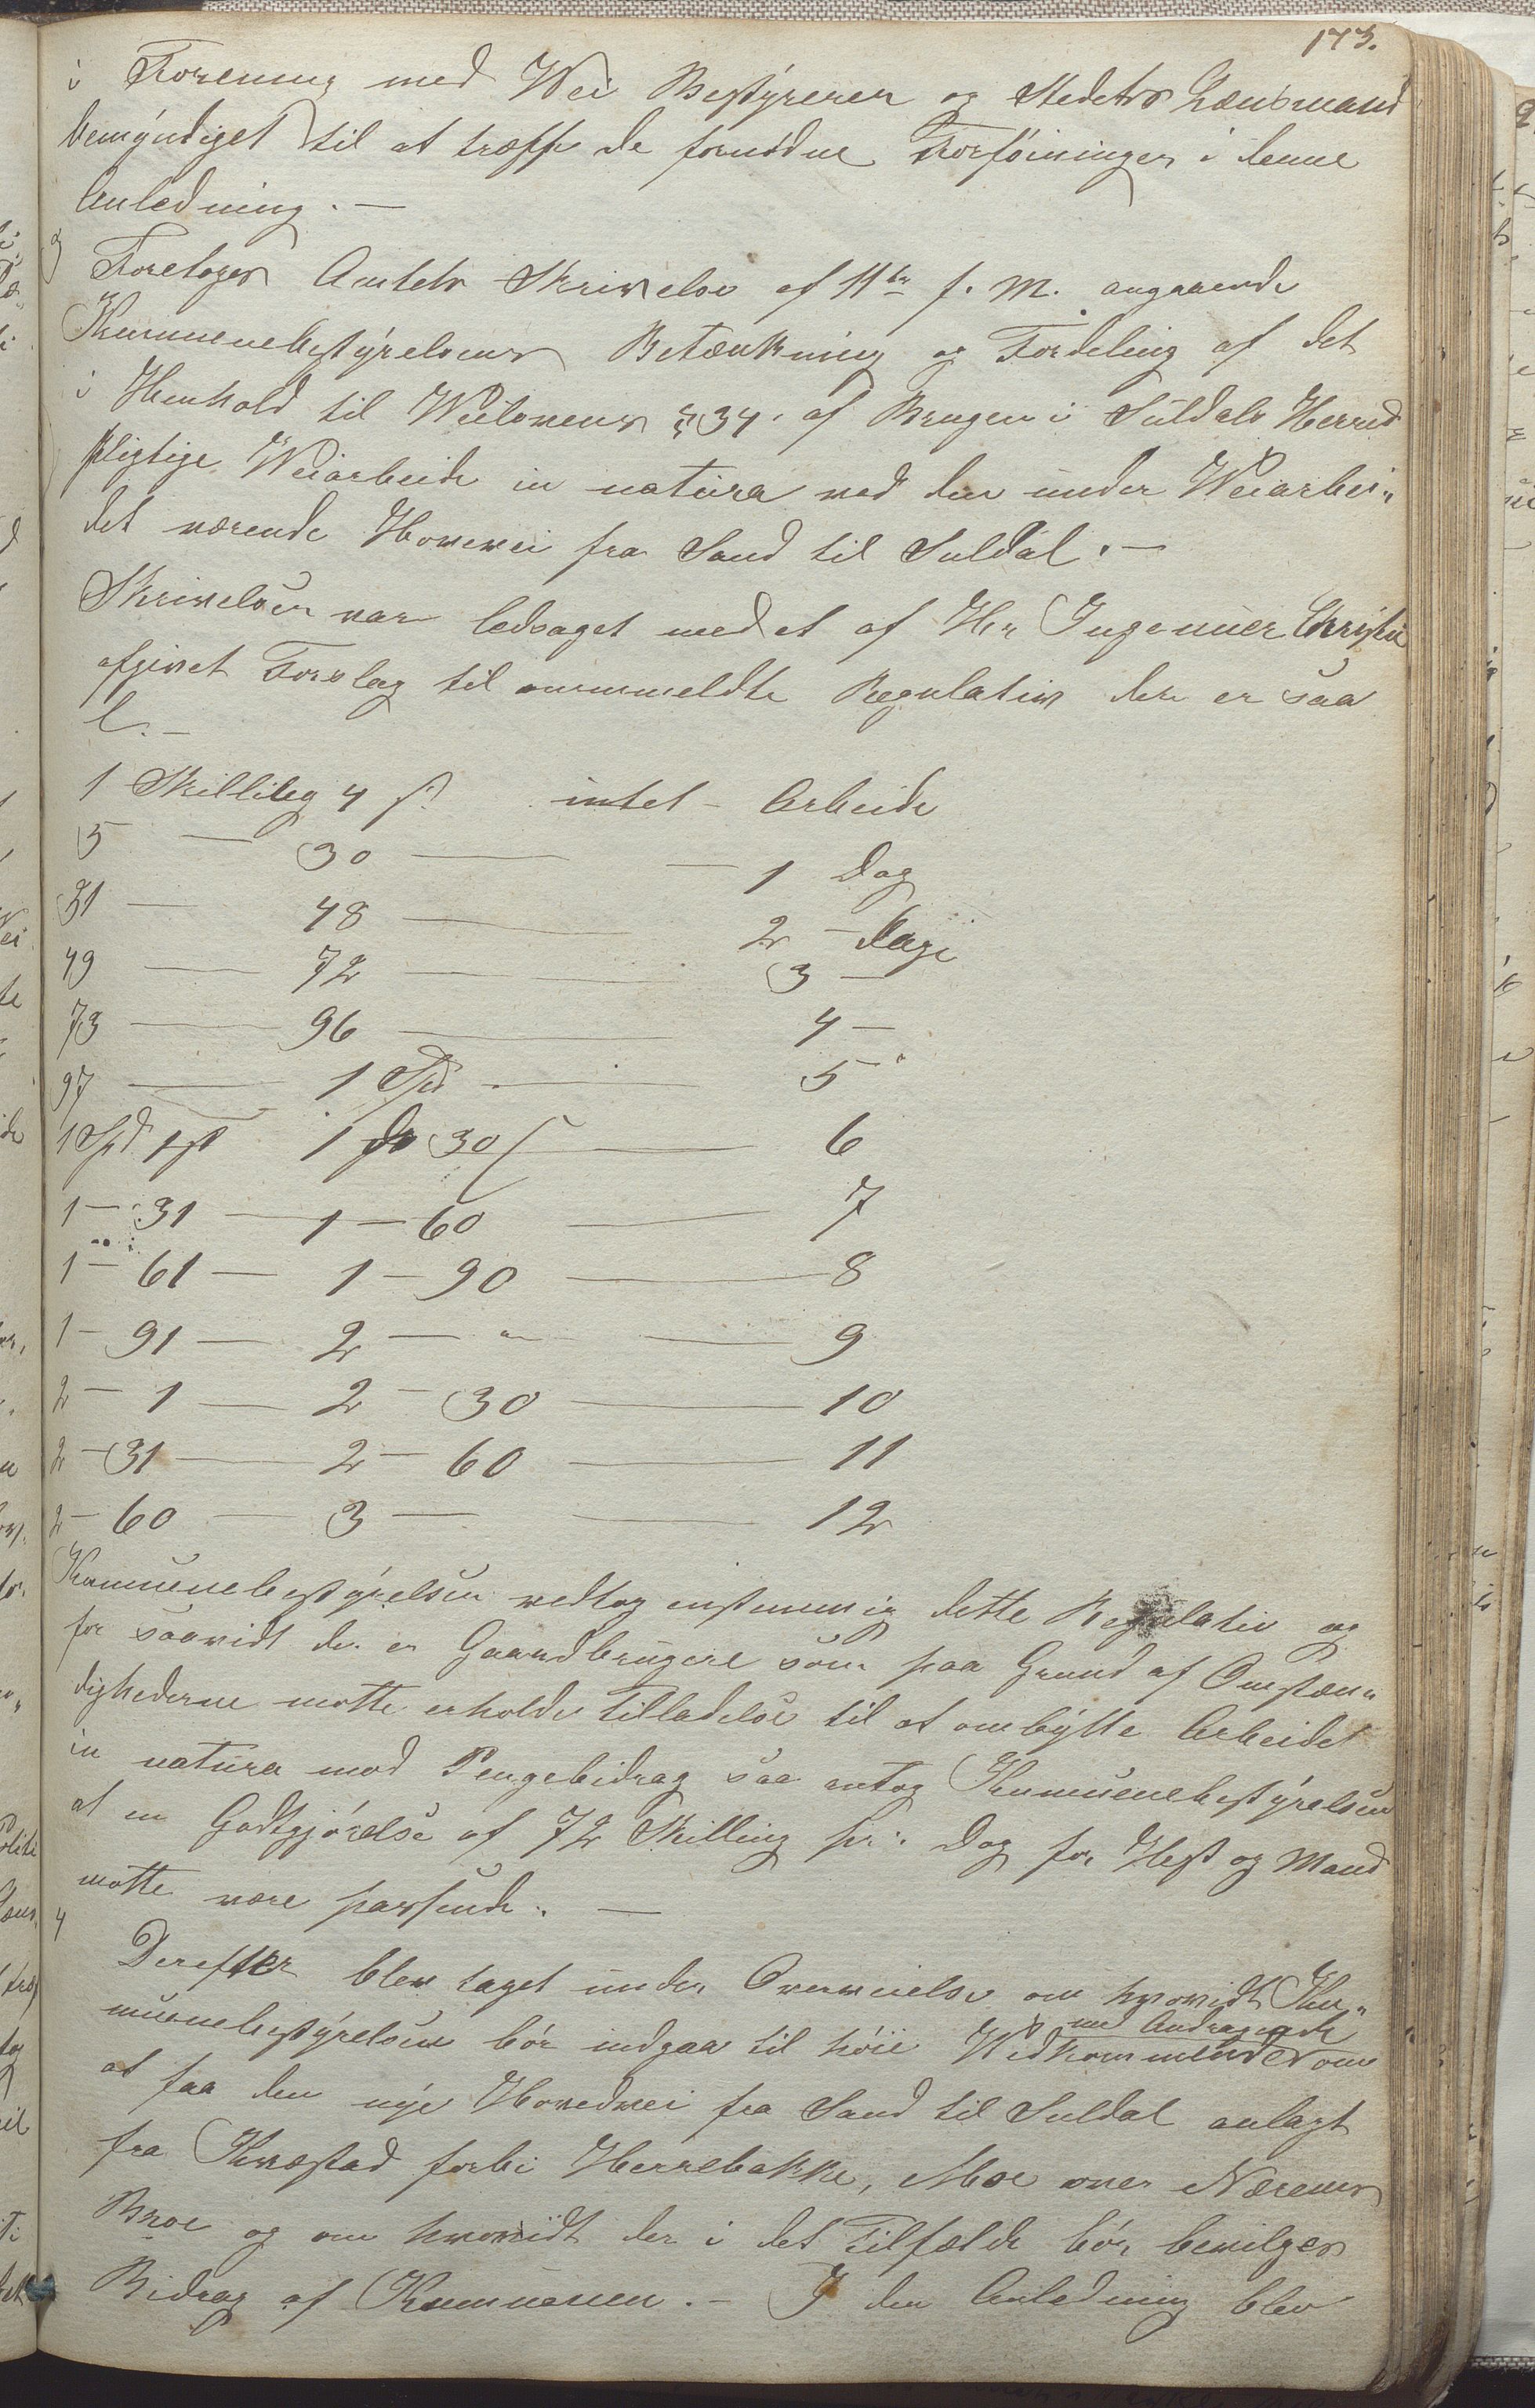 173.
i Forening med Vei Bestyreren og Stedets Lænsmand
bemyndiget til at træffe de fornødne Forføininger i denne
Anledning. —
3
Foretoges Amtets Skrivelse af 11te f. M. angaaende
Kummunebestyrelsens Betænkning og Fordeling af det
i Henhold til Veilovens § 34. af Brugen i Suldals Herred
pligtige Veiarbeide in natura ved den under Veiarbei„
det værende Hovevei fra Sand til Suldal. —
Skrivelsen var ledsaget med et af Hr Ingeniuer Christie
afgivet Forslag til ommmeldte Regulativ der er saa
l. —
1 Skilliling 4 ß. intet – Arbeide
5 — 30 — — 1 Dag
31 — 48 — 2 – Dage
49 — 72 — 3 —
73 — 96 — 4 —
97 — 1 Spd — 5
1 Spd 1 ß 1 do 30 ß — 6
1 — 31 — 1 — 60 — 7
1 — 61 — 1 — 90 — 8
1 — 91 — 2 — „ — 9
2 — 1 — 2 — 30 — 10
2 — 31 — 2 — 60 — 11
2 — 60 — 3 — — 12
Kummunebestyrelsen vedtog enstemmig dette Regulativ og
for saavidt der er Gaardbrugere som paa Grund af Omstæn„
dighederne motte erholde Tilladelse til at ombytte Arbeidet
in natura mod Pengebidrag saa antog Kummunebestyrelsen
at en Godtgjørelse af 72 Skilling pr: Dag for Hest og Mand
motte være passende. —
4
Derefter blev taget under Overveielse om hvorvidt Kum„
munebestyrelsen bør indgaa til høie Vedkommende med Andragende om
at faa den nye Hovedvei fra Sand til Suldal anlagt
fra Kvæstad forbi Herrebakke, Moe over Nærems
Broe og om hvorvidt der i det Tilfælde bør bevilges
Bidrag af Kummunen. – I den Anledning blev